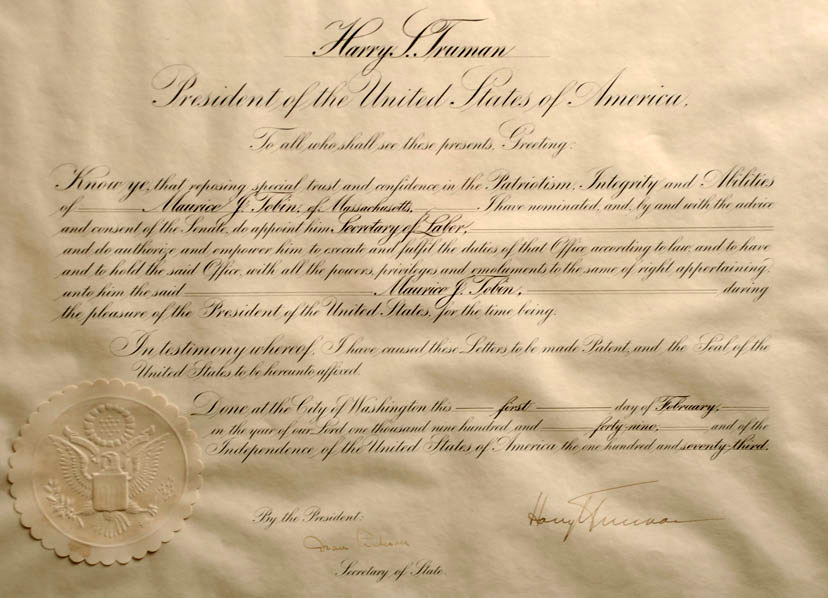 Harry S. Truman
President of the United States of America,
To all who shall see these presents, Greeting:
Know ye, that reposing special trust and confidence in the Patriotism, Integrity and Abilities
of Maurice J. Tobin, of Massachusetts, I have nominated, and, by and with the advice
and consent of the Senate, do appoint him Secretary of Labor,
and do authorize and empower him to execute and fulfil the duties of that Office according to law, and to have
and to hold the said Office, with all the powers, privileges and emoluments to the same of right appertaining
unto him the said Maurice J. Tobin, during
the pleasure of the President of the United States, for the time being.
In testimony whereof, I have caused these Letters to be made Patent, and the Seal of the
United States to be hereunto affixed.
Done at the City of Washington this first day of February,
in the year of our Lord one thousand nine hundred and forty-nine, and of the
Independence of the United States of America the one hundred and seventy-third.
Harry S. Truman
By the President:
Dean Acheson
Secretary of State.